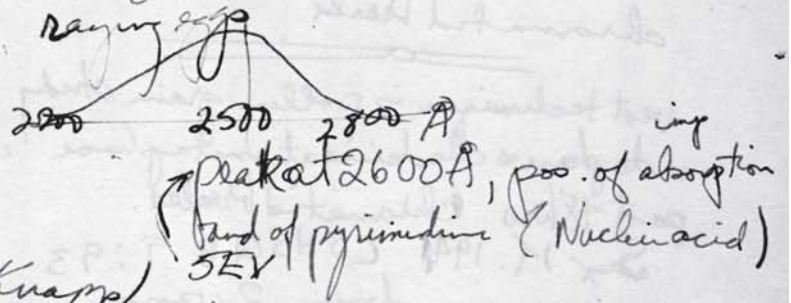 raying eggs
2200 2500 2800 Å
imp
peak at 2600 Å, pos. of absorption
band of pyrimidine (Nucleic acid)
5EV
Knapp)